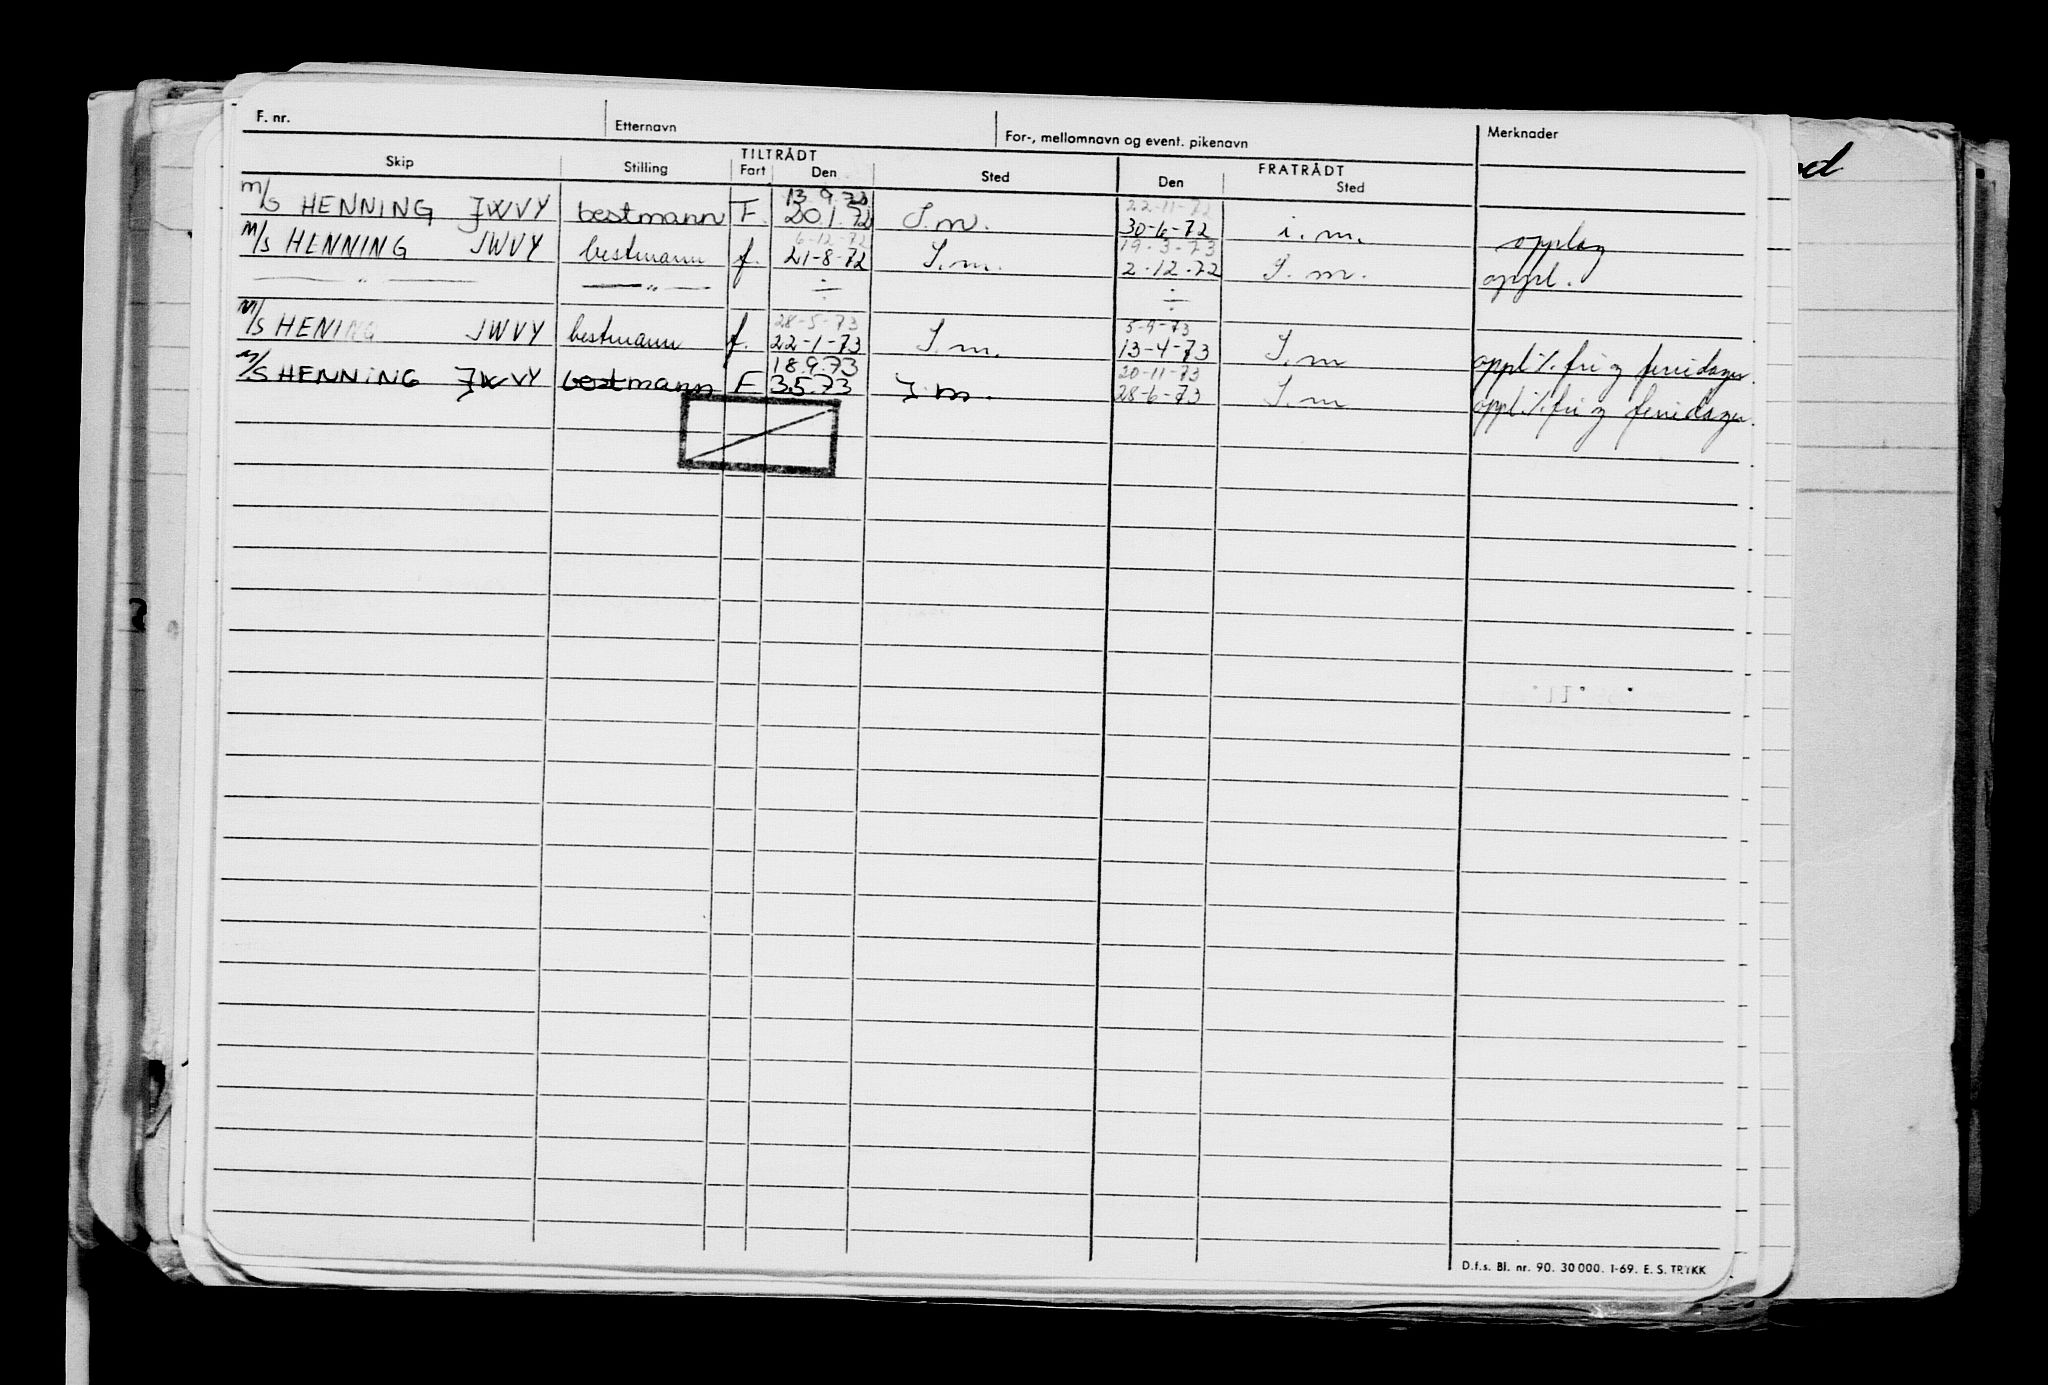 F. nr. Etternavn For-, mellomnavn og event. pikenavn Merknader
TILTRÅDT FRATRÅDT
Skip Stilling Fart Den Sted Den Sted
13.9.72 22-11-72
m/s HENNING JWVY bestmann F. 20.1.72 I.m. 30-6-72 i.m. opplag
6-12-72 19-3-73
M/s HENNING JWVY bestmann f. 21-8-72 I.m. 2-12-72 I.m. oppl.
— " — — " — ÷ ÷
28-5-73 5-9-73
M/s HENING JWVY bestmann f. 22-1-73 I.m. 13-4-73 I.m oppl % fri og feriedager.
18.9.73 20-11-73
M/S HENNING JWVY bestmann F 3.5.73 I.m. 28-6-73 I.m oppl % fri og feriedager.
D.f.s. Bl. nr. 90. 30 000. 1-69. E. S. TRYKK